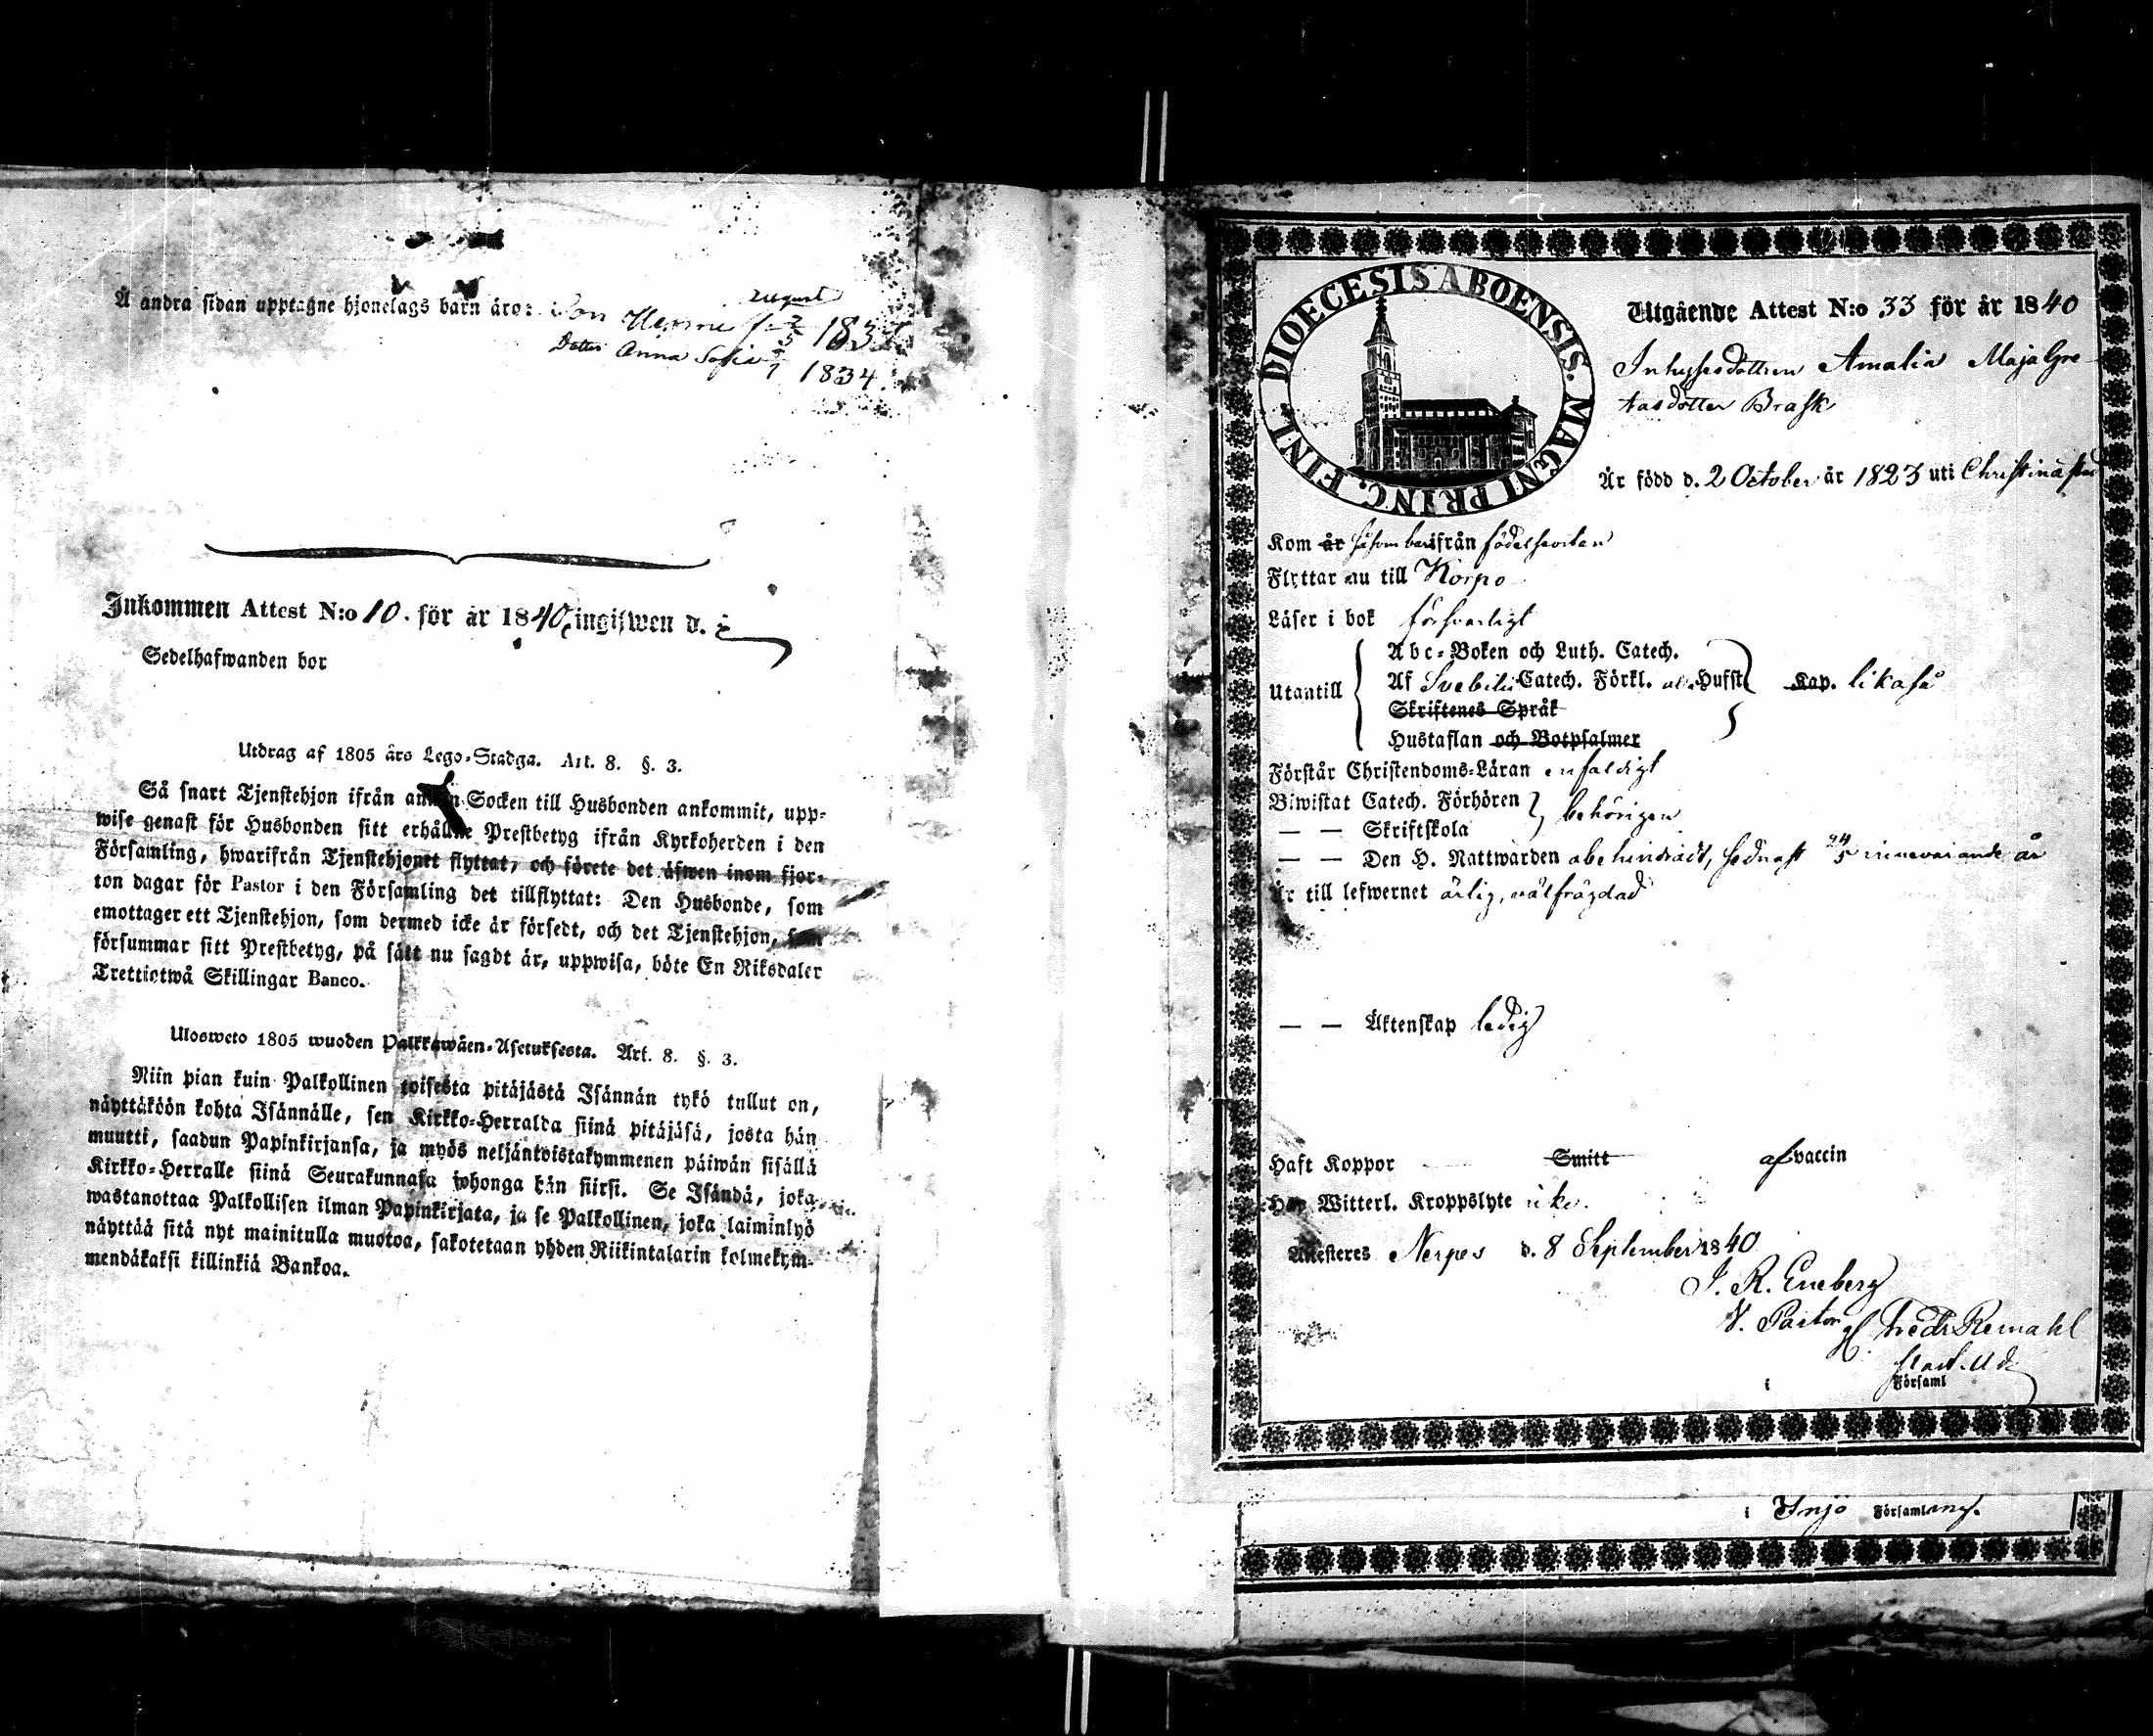 Å andra sidan upptagne hjonelags barn äro: Son
August
1837
Dotter Anna Sofia 1834.
Inkommen Attest N:o 10. för år 1840, ingifwen d.
Sedelhafwanden bor
Utdrag af 1805 års Lego-Stadga. Art. 8. §. 3.
Så snart Tjenstehjon ifrån annan Socken till Husbonden ankommit, upp-
wise genast för Husbonden sitt erhållne Prestbetyg ifrån Kyrkoherden i den
Församling, hwarifrån Tjenstehjonet flyttat, och förete det äfwen inom fjor-
ton dagar för Pastor i den Församling det tillflyttat: Den Husbonde, som
emottager ett Tjenstehjon, som dermed icke är försedt, och det Tjenstehjon, som
försummar sitt Prestbetyg, på sätt nu sagdt är, uppwisa, böte En Riksdaler
Trettiotwå Skillingar Banco.
Ulosweto 1805 wuoden Palkkawäen-Asetuksesta. Art. 8. §. 3.
Niin pian kuin Palkollinen toisesta pitäjästä Isännän tykö tullut on,
näyttäköön kohta Isännälle, sen Kirkko-Herralda siinä pitäjäsä, josta hän
muutti, saadun Papinkirjansa, ja myös neljäntoistakymmenen päiwän sisällä
Kirkko-Herralle siinä Seurakunnasa johonga hän siirsi. Se Isändä, joka
wastanottaa Palkollisen ilman Papinkirjata, ja se Palkollinen, joka laiminlyö
näyttää sitä nyt mainitulla muotoa, sakotetaan yhden Riikintalarin kolmekym-
mendäkaksi killinkiä Bankoa.
DIOECESIS ABOENSIS. MAGNI PRINC. FINL.
Utgående Attest N:o 33 för år 1840
Inhyssesdottren Amalia Maja Gre-
tasdotter Brask
År född d. 2 October år 1823 uti Christinastad
Kom år såsom barn ifrån födelseorten
Flyttar nu till Korpo
Läser i bok försvarligt
Utantill
Abc-Boken och Luth. Catech.
Af Svebilii Catech. Förkl. alla Hufst Kap. likaså
Skriftenes Språk
Hustaflan och Botpsalmer
Förstår Christendoms-Läran enfaldigt
Biwistat Catech. Förhören behörigen
— — Skriftskola
— — Den H. Nattwarden obehindradt, sednast 24/5 innevarande år
Är till lefwernet ärlig, välfrägdad
— — Äktenskap ledig
Haft Koppor Smitt af vaccin
Har Witterl. Kroppslyte icke.
Attesteres Nerpes d. 8 September 1840
J. R. Eneberg
V. Pastor
i Församl
i Ingo Församling.